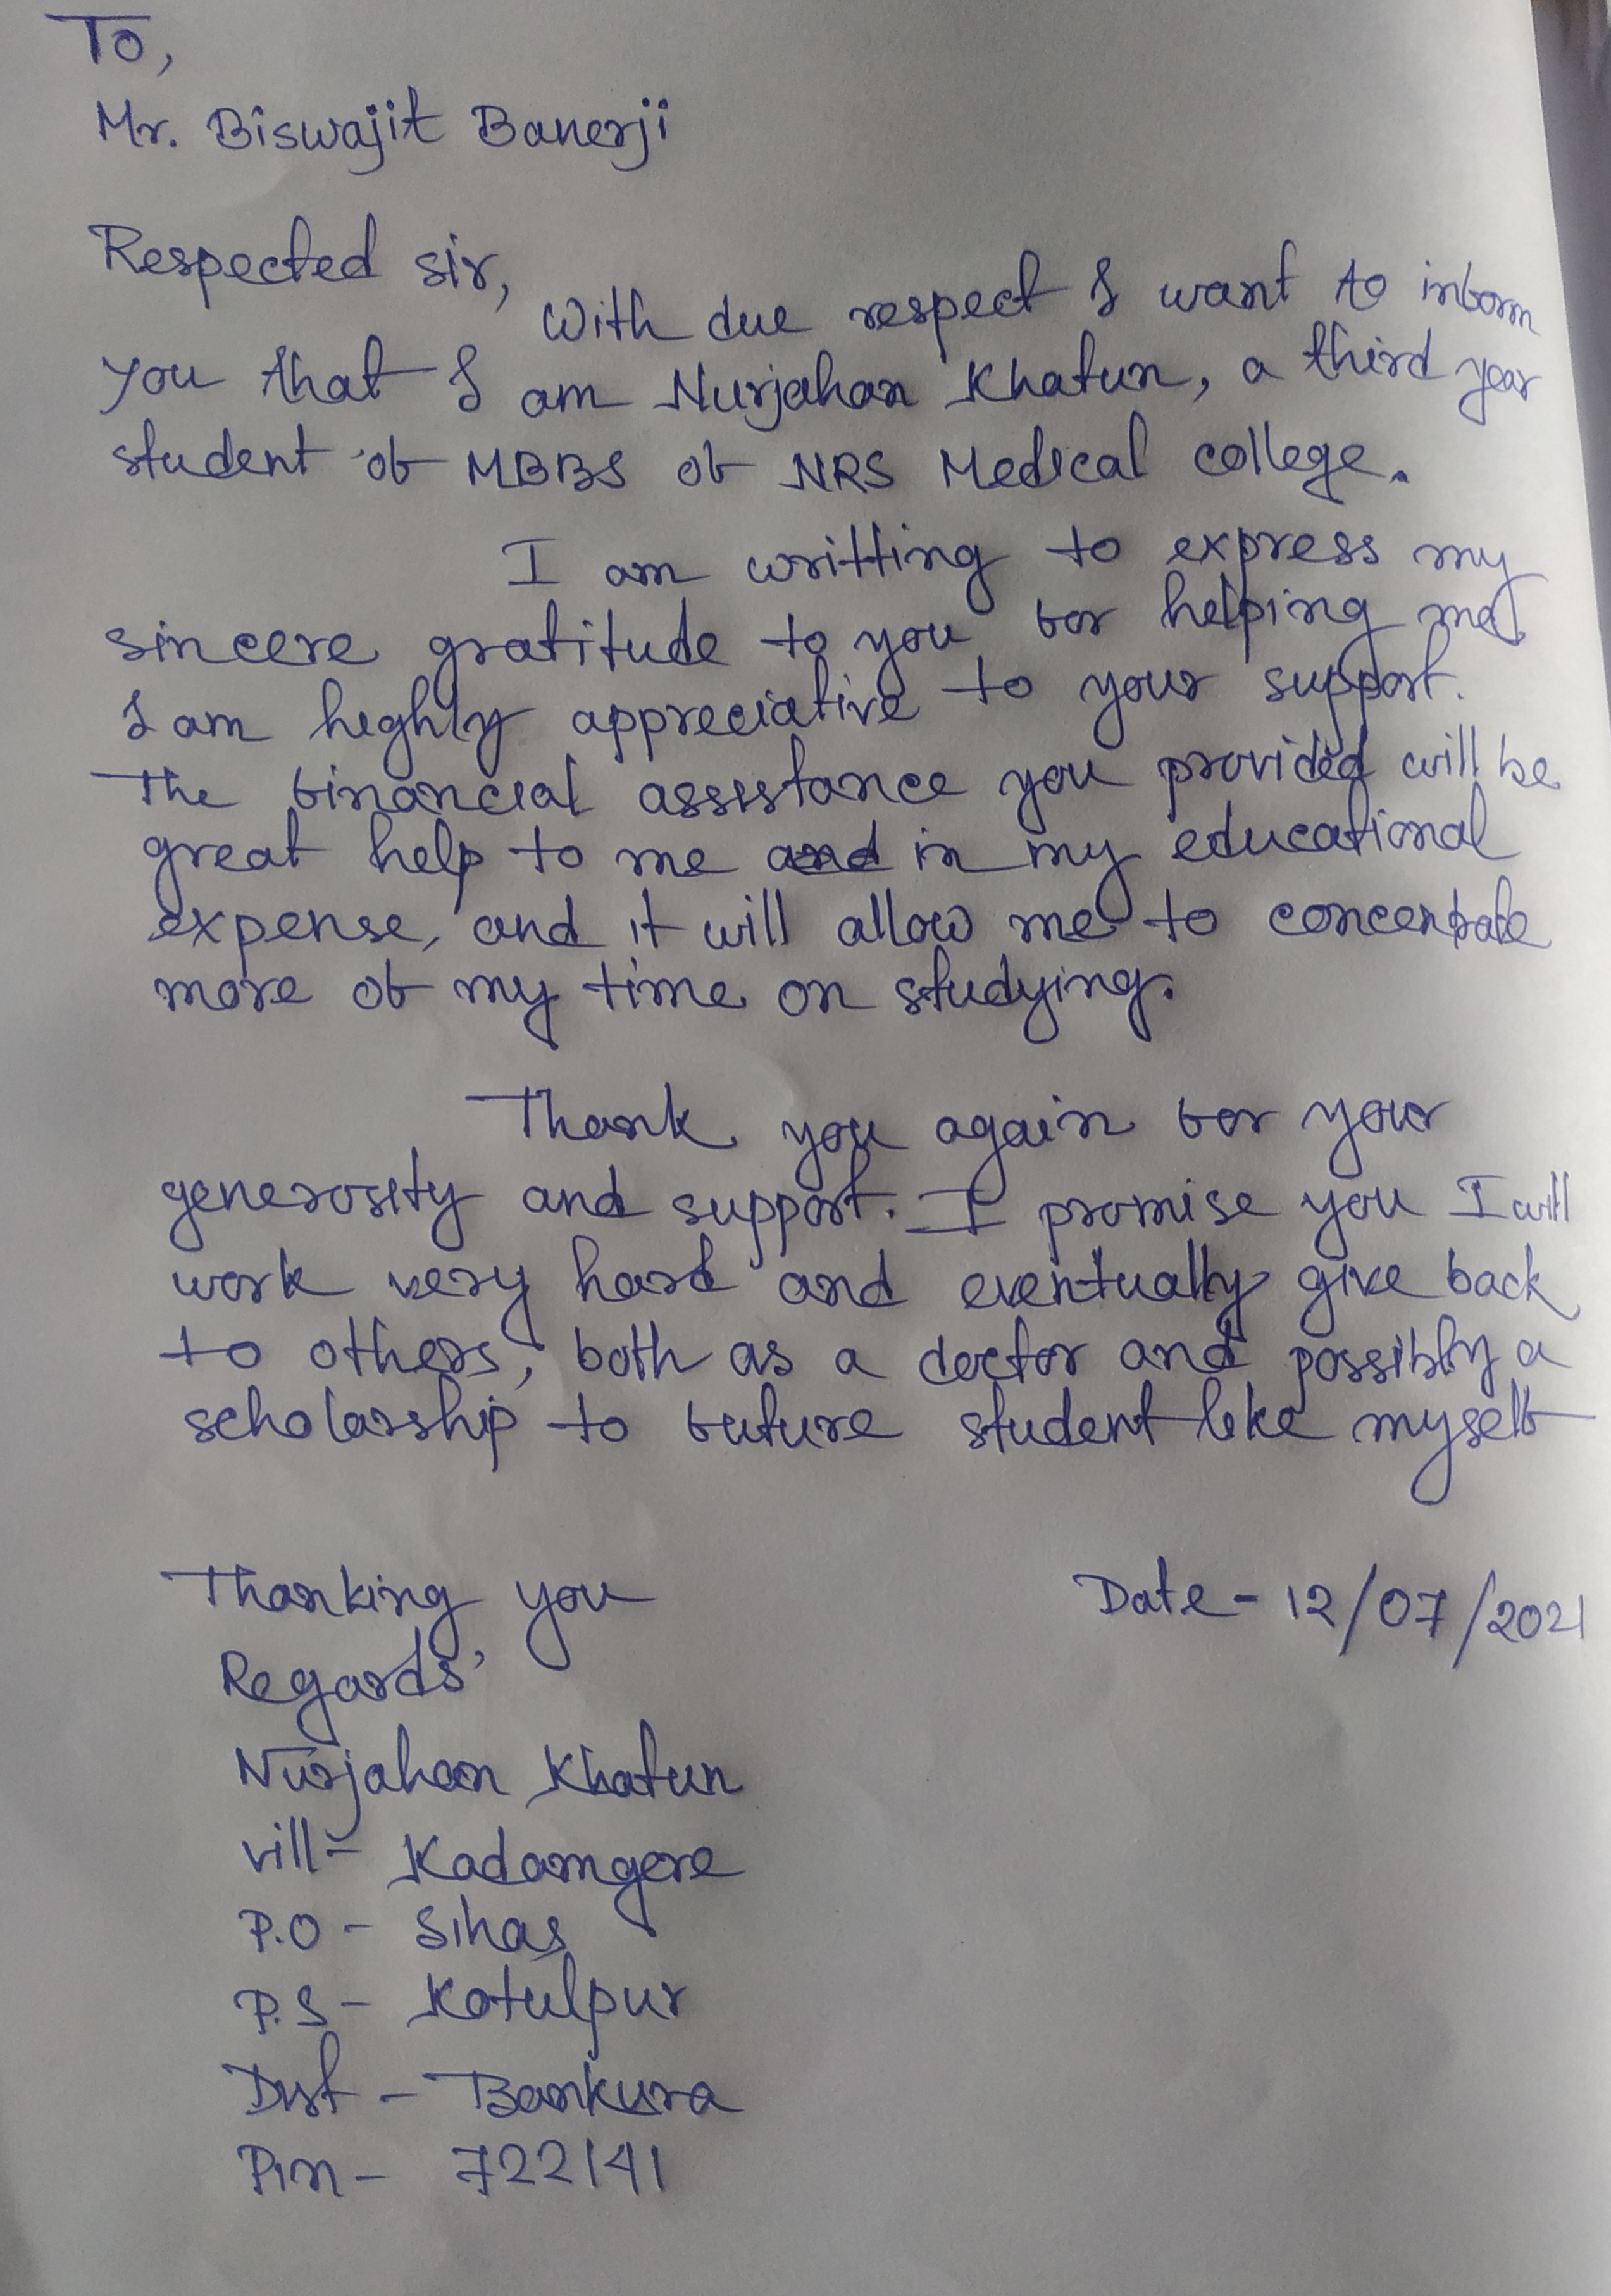 To,
Mr. Biswajit Banerji
Respected sir,
With due respect I want to inform
you that I am Nurjahan Khatun, a third year
student of MBBS of NRS Medical college.
I am writting to express my
sincere gratitude to you for helping me.
I am highly appreciative to your support.
The financial assistance you provided will be
great help to me and in my educational
expense, and it will allow me to concentrate
more of my time on studying.
Thank you again for your
generosity and support. I promise you I will
work very hard and eventually give back
to others, both as a doctor and possibly a
scholarship to future student like myself
Thanking you
Date - 12/07/2021
Regards,
Nurjahan Khatun
vill - Kadamgere
P.O - Sihas
P.S - Kotulpur
Dist - Bankura
Pin - 722141